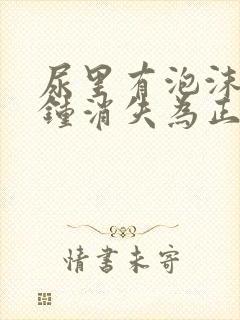 尿里有泡沫
鐘消失為正
情書未寄